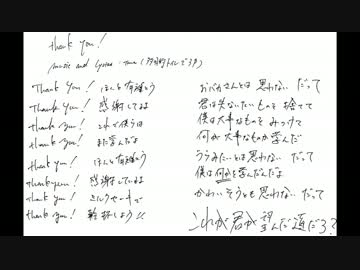 Thank you!
music and lyrics
Thank you! ほんと有難とう
Thank you! 感謝してるよ
Thank you! これで僕らは
thank you! また学んだよ
Thank you! ほんと有難とう
thank you! 感謝しているよ
thank you! ミルクセーキで
thank you! 乾杯しよう!!
おバカさんとは思わない だって
君は失ないたいものを捨てて
僕は大事なものをみつけて
何が大事なものか学んだ
うらみたいとは思わない だって
僕は何かを学んだんだよ
かわいそうとも思わない だって
これが君が望んだ道だろ?